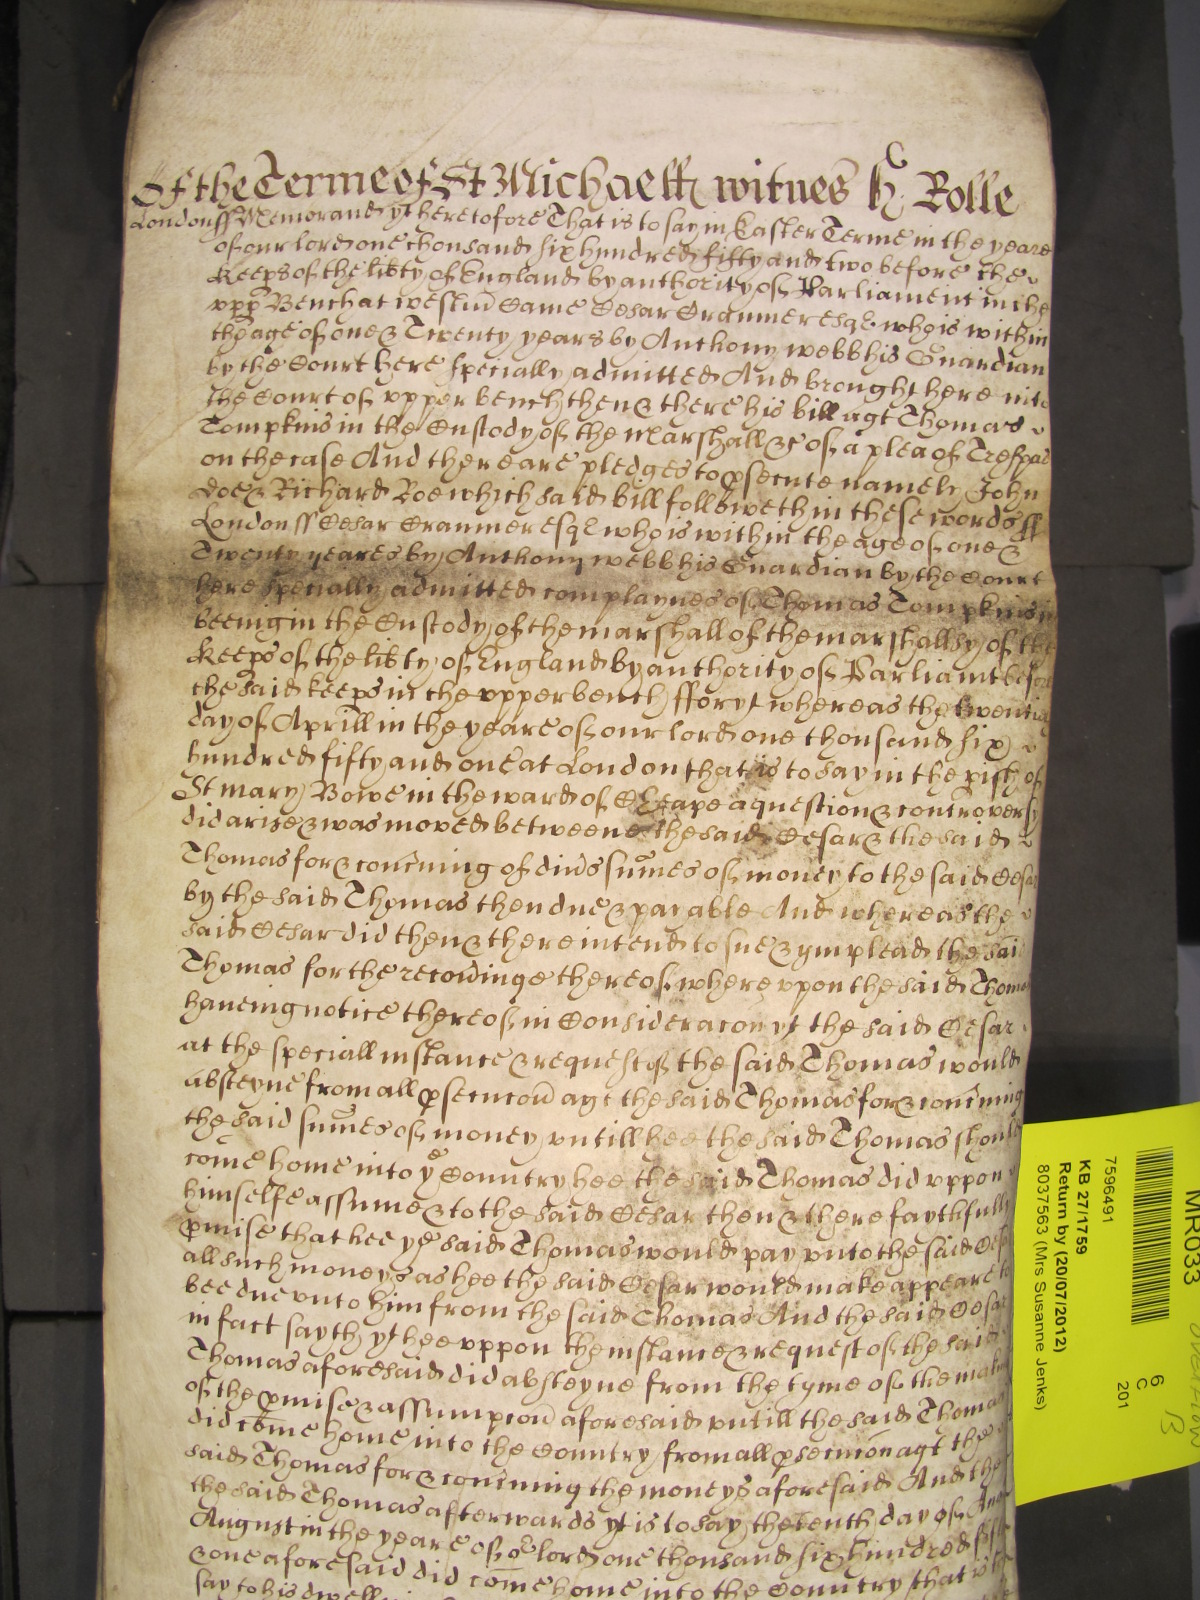 Of the Terme of St Michaell witnes H Rolle
London ss Memorand yt heretofore That is to say in Easter Terme in the yeare
of our lord one thousand six hundred fifty and two before the
Keeps of the libty of England by authority of Parliament in the
upp Bench at Westm Came Cesar Cranmer esqr who is within
the age of one & Twenty years by Anthony webb his Guardian
by the Court here specially admitted And brought here into
the Court of upper bench then & there his bill agt Thomas
Tompkins in the Custody of the Marshall &c of a plea of Trespas
on the case And there are pledges to psecute namely John
Doe & Richard Roe which said bill followeth in these words ss
London ss Cesar Cranmer esqr who is within the age of one &
Twenty yeares by Anthony webb his Guardian by the Court
here specially admitted complaynes of Thomas Tompkins
beeing in the Custody of the marshall of the marshallsy of the
Keeps of the libty of England by authority of Parliamt before
the said keeps in the upper bench ffor yt whereas the
day of Aprill in the yeare of our lord one thousand six
hundred fifty and one at London that is to say in the pish of
St mary Bowe in the ward of Cheape a question & controversy
did arise & was moved betweene the said Cesar & the said
Thomas for & concning of divs summes of money to the said Cesar
by the said Thomas then due & payable And whereas the
said Cesar did then & there intend to sue & ymplead the said
Thomas for the recovinge thereof whereuppon the said Thomas
haueing notice thereof in Consideracon yt the said Cesar
at the speciall instance & request of the said Thomas would
absteyne from all psecucon agt the said Thomas for & concning
the said summes of money untill hee the said Thomas should
come home into ye Country hee the said Thomas did uppon
himselfe assume & to the said Cesar then & there faythfully
pmise that hee ye said Thomas would pay unto the said Cesar
all such moneys as hee the said Cesar would make appeare to
bee due unto him from the said Thomas And the said Cesar
in fact sayth yt hee uppon the instance & request of the said
Thomas aforesaid did absteyne from the tyme of the makeing
of the pmise & assumpcon aforesaid untill the said Thomas
did come home into the Country from all psecucon agt the
said Thomas for & concning the moneys aforesaid And the
the said Thomas afterwards yt is to say the tenth day of
August in the yeare of or lord one thousand six hundred fifty
& one aforesaid did come home into the Country that is
say to his
MR033
7596491
KB 27/1759
Return by (20/07/2012)
8037563 (Mrs Susanne Jenks)
6
C
201
B